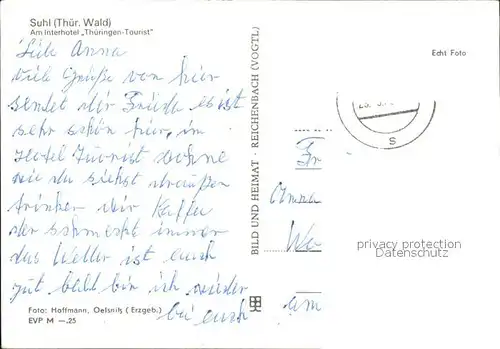 Suhl (Thür. Wald)
Am Interhotel „Thüringen-Tourist"
Liebe Anna
viele Grüße von hier
sendet dir Frieda es ist
sehr schön hier, im
Hotel Tourist wohne
wie du siehst draußen
trinken wir Kaffee
der schmeckt immer
das Wetter ist auch
gut bald bin ich wieder
bei euch
Foto: Hoffmann, Oelsnitz (Erzgeb.)
EVP M —.25
BILD UND HEIMAT · REICHENBACH (VOGTL)
Echt Foto
S
Fr
Anna
Wa
am
privacy protection
Datenschutz